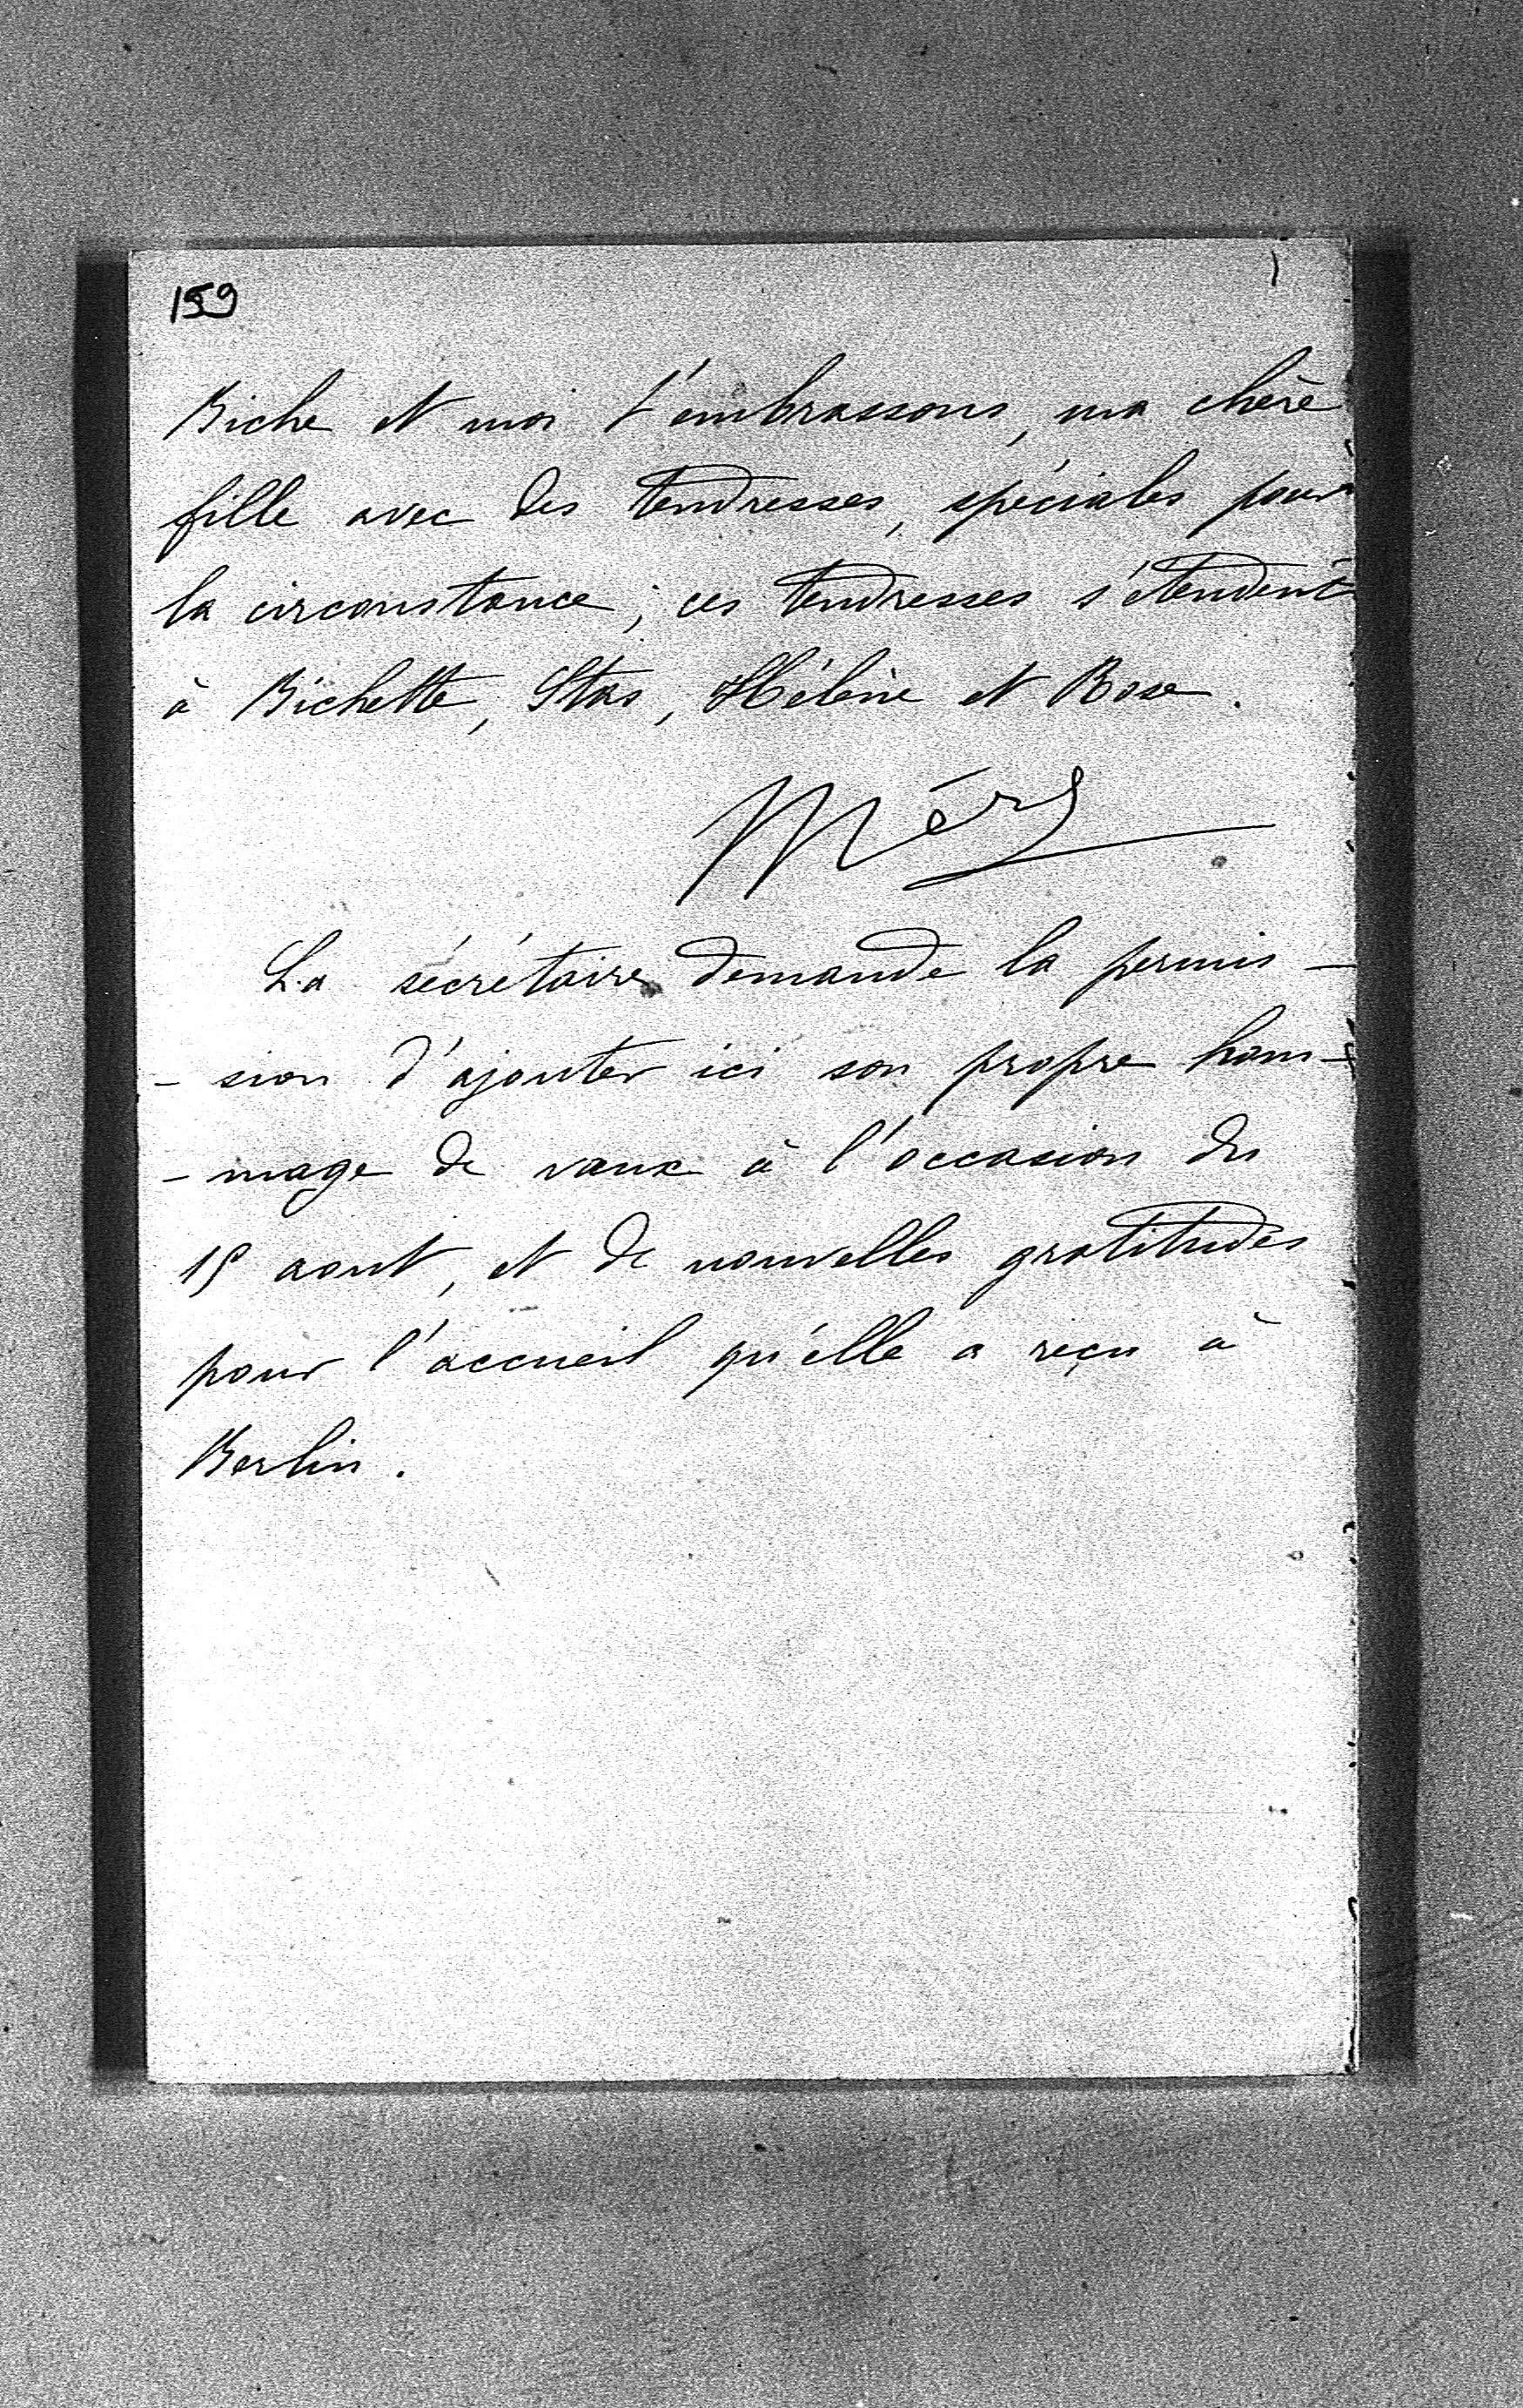 159
Biche et moi t'embrassons, ma chère
fille avec des tendresses, spéciales pour
la circonstance; ces tendresses s'étendent
à Bichette, Stas, Hélène et Rose.
Mère
La sécrétaire demande la permis-
-sion d'ajouter ici son propre hom-
-mage de vœux à l'occasion du
15 aout, et de nouvelles gratitudes
pour l'accueil qu'elle a reçu à
Berlin.